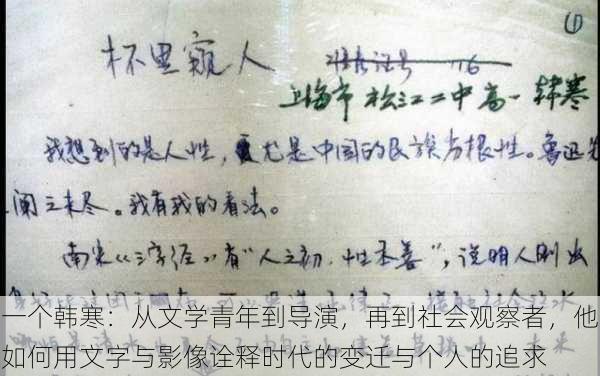 (1)
杯里窥人
上海市松江二中高一 韩寒
我想到的是人性,尤是中国的民族劣根性。鲁迅先
阐之未尽。我有我的看法。
南宋《三字经》有“人之初,性本善”,说明人刚出
一个韩寒:从文学青年到导演,再到社会观察者,他
如何用文字与影像诠释时代的变迁与个人的追求